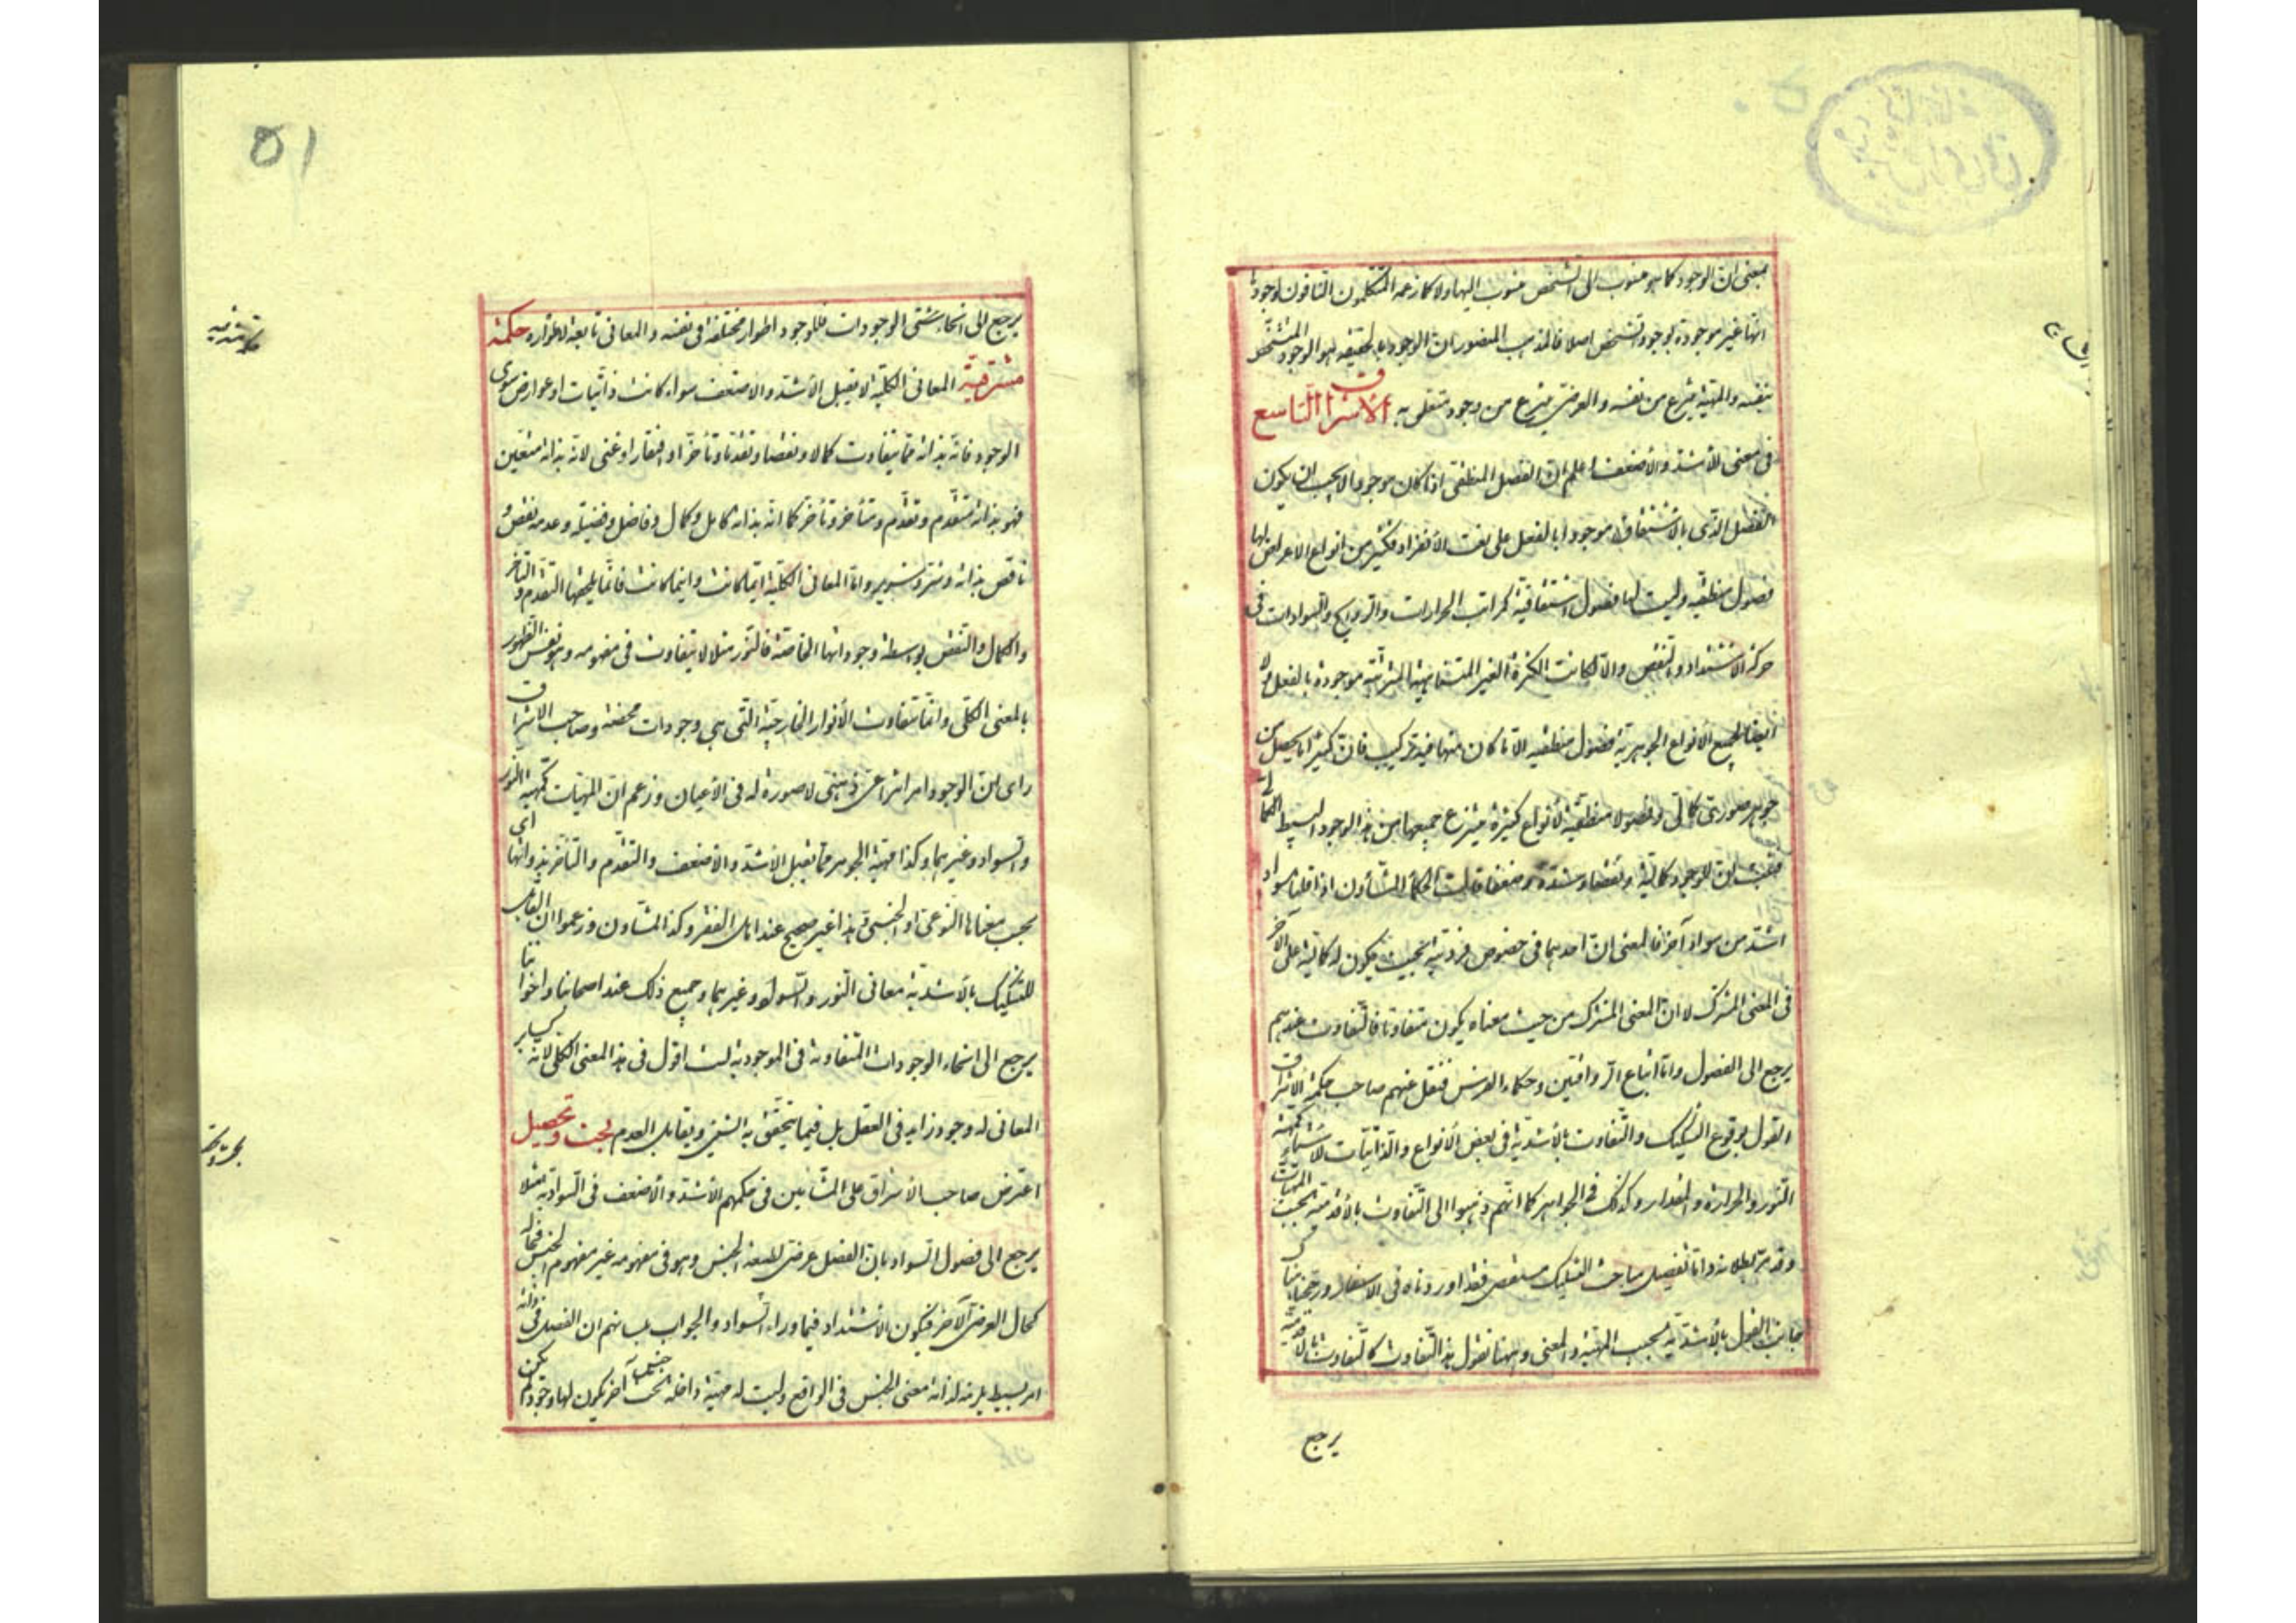 بمعنى ان الوجود كما هو منسوب الى الشخص منسوب اليها ولا كما زعمه المتكلمون النافون لوجودها
انها غير موجودة بوجود الشخص اصلا فالمذهب المنصور ان الوجود بالحقيقة هو الوجود المتشخص
بنفسه والمهية ينتزع من نفسه والعرضى ينتزع من وجود متعلق به الاشراق التاسع
فى معنى الأشد والأضعف اعلم ان الفصل المنطقى اذا كان موجودا لا يجب ان يكون
الفصل الذى بالاشتقاق موجودا بالفعل على نعت الأنفراد فكثير من انواع الاعراض لها
فصول منطقيه وليست لها فصول اشتقاقية كمراتب الحرارات والروايح والسوادات فى
حركة الاشتداد والتنقص والا لكانت الكثرة الغير المتناهية المترتبة موجودة بالفعل
ايضا لجميع الأنواع الجوهرية فصول منطقيه الا ما كان منها فيه تركيب فان كثيرا ما يحصل من
جوهر صورى كمالى وفصولا منطقية لأنواع كثيرة ينتزع جميعها من هذا الوجود البسيط الكمالى
فثبت ان للوجود كمالية ونقصا وشدة وضعفا قالت الحكماء المشاؤن اذا قلنا سواد
اشد من سواد آخر فالمعنى ان احدهما فى خصوص فرديته بحيث يكون له كمالية على الآخر
فى المعنى المشترك لا ان المعنى المشترك من حيث معناه يكون متفاوتا فالتفاوت عندهم
يرجع الى الفصول واما اتباع الرواقيين وحكماء الفرس فنقل عنهم صاحب حكمة الاشراق
القول بوقوع التشكيك والتفاوت بالأشدية فى بعض الأنواع والذاتيات للاشياء كمهية
النور والحرارة والمقدار وكذلك فى الجواهر كما انهم ذهبوا الى التفاوت بالأقدمية بحسب المهيات
وقد مر بطلانه واما تفصيل مباحث التشكيك مستقصى فقد اوردناه فى الاسفار ورجحنا هناك
جانب القول بالأشدية بحسب المهية والمعنى وههنا نقول هذا التفاوت كالتفاوت بالأقدمية
يرجع
٥١
يرجع الى انحاء شتى الوجودات فللوجود اطوار مختلفة فى نفسه والمعانى تابعة لاطواره حكمة
مشرقية المعانى الكلية لا يقبل الأشد والاضعف سواء كانت ذاتيات او عوارض سوى
الوجود فانه بذاته مما يتفاوت كمالا ونقصا وتقدما وتأخرا وافتقارا وغنى لانه بذاته متعين
فهو بذاته متقدم وتقدم ومتأخر وتأخر كما انه بذاته كامل وكمال وفاضل وفضيلة وعدمه نقص و
ناقص بذاته وشر وشرير واما المعانى الكلية ايتها كانت واينما كانت فانما يلحقها التقدم والتأخر
والكمال والنقص بواسطة وجوداتها الخاصة فالنور مثلا لا يتفاوت فى مفهومه وهو نفس الظهور
بالمعنى الكلى وانما يتفاوت الأنوار الخارجية التى هى وجودات محضة وصاحب الاشراق
راى ان الوجود امر انتزاعى ذهنى لا صورة له فى الأعيان وزعم ان المهيات كمهية النور
والسواد وغيرهما وكذا مهية الجوهر مما يقبل الأشد والاضعف والتقدم والتأخر بذواتها اى
بحسب معناها النوعى او الجنسى وهذا غير صحيح عند اهل الفقر وكذا المشاون وزعموا ان القابل
للتشكيك بالأشدية معانى النور والسواد وغيرهما وجميع ذلك عند اصحابنا واخواننا
يرجع الى انحاء الوجودات المتفاوتة فى الموجودية لست اقول فى هذا المعنى الكلى لانه كساير
المعانى له وجود زايد فى العقل بل فيما يتحقق به الشئ ويقابل العدم بحث وتحصيل
اعترض صاحب الأشراق على المشائين فى حكمهم الأشد والأضعف فى السوادية مثلا
يرجع الى فصول السواد بان الفصل عرضى لطبيعة الجنس وهو فى مفهومه غير مفهوم الجنس فحاله
كحال العرضى الآخر فيكون الاشتداد فيما وراء السواد والجواب بلسانهم ان الفصل فى ذاته
امر بسيط يلزمه لذاته معنى الجنس فى الواقع وليست له مهية داخلة تحت جنسها آخر يكون لها وجود لم يكن